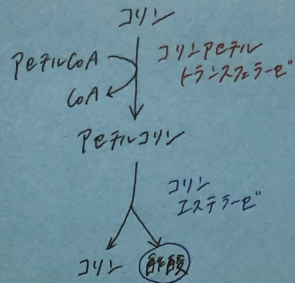 コリン
アセチルCoA
コリンアセチル
トランスフェラーゼ
CoA
アセチルコリン
コリン
エステラーゼ
コリン
酢酸